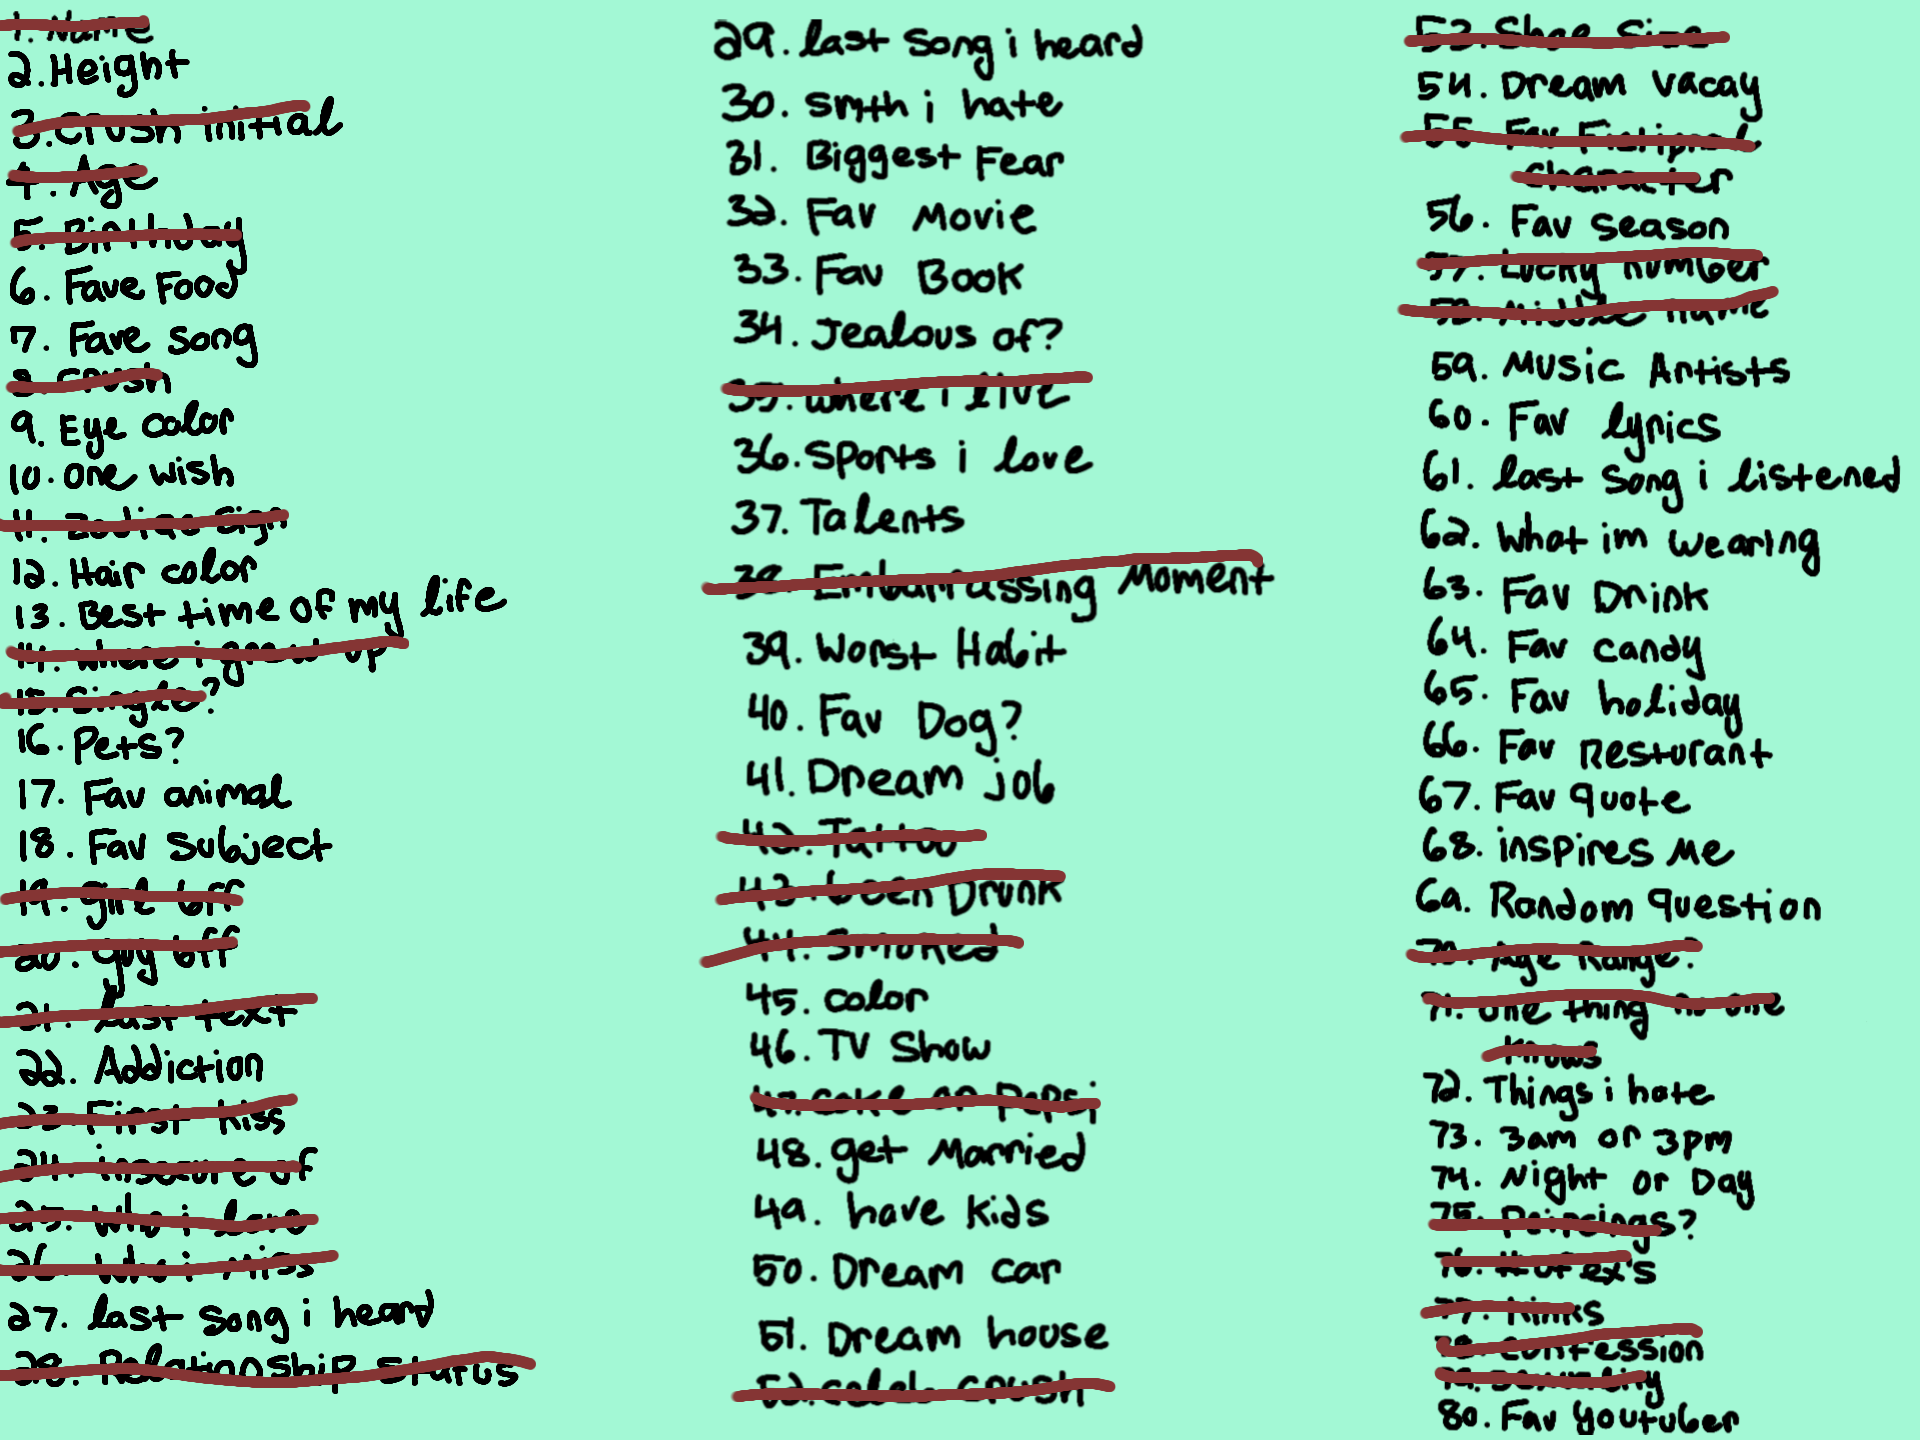 1. Name
2. Height
3. Crush initial
4. Age
5. Birthday
6. Fave Food
7. Fave song
8. Crush
9. Eye color
10. one wish
11. Zodiac Sign
12. Hair color
13. Best time of my life
14. where i grew up
15. Single?
16. Pets?
17. Fav animal
18. Fav Subject
19. girl bff
20. guy bff
21. last text
22. Addiction
23. First kiss
24. insecure of
25. Who i love
26. Who i miss
27. last song i heard
28. Relationship status
29. last song i heard
30. smth i hate
31. Biggest Fear
32. Fav Movie
33. Fav Book
34. Jealous of?
35. where i live
36. Sports i love
37. Talents
38. Embarrassing Moment
39. Worst Habit
40. Fav Dog?
41. Dream job
42. Tattoo
43. been Drunk
44. Smoked
45. color
46. TV Show
47. coke or Pepsi
48. get Married
49. have kids
50. Dream car
51. Dream house
52. celeb crush
53. Shoe Size
54. Dream vacay
55. Fav Fictional
Character
56. Fav season
57. Lucky number
58. Middle name
59. Music Artists
60. Fav lyrics
61. last song i listened
62. What im wearing
63. Fav Drink
64. Fav candy
65. Fav holiday
66. Fav Resturant
67. Fav quote
68. inspires me
69. Random question
70. Age Range?
71. one thing no one
knows
72. Things i hate
73. 3am or 3pm
74. Night or Day
75. Peircings?
76. # of ex's
77. Kinks
78. confession
79. sexuality
80. Fav youtuber